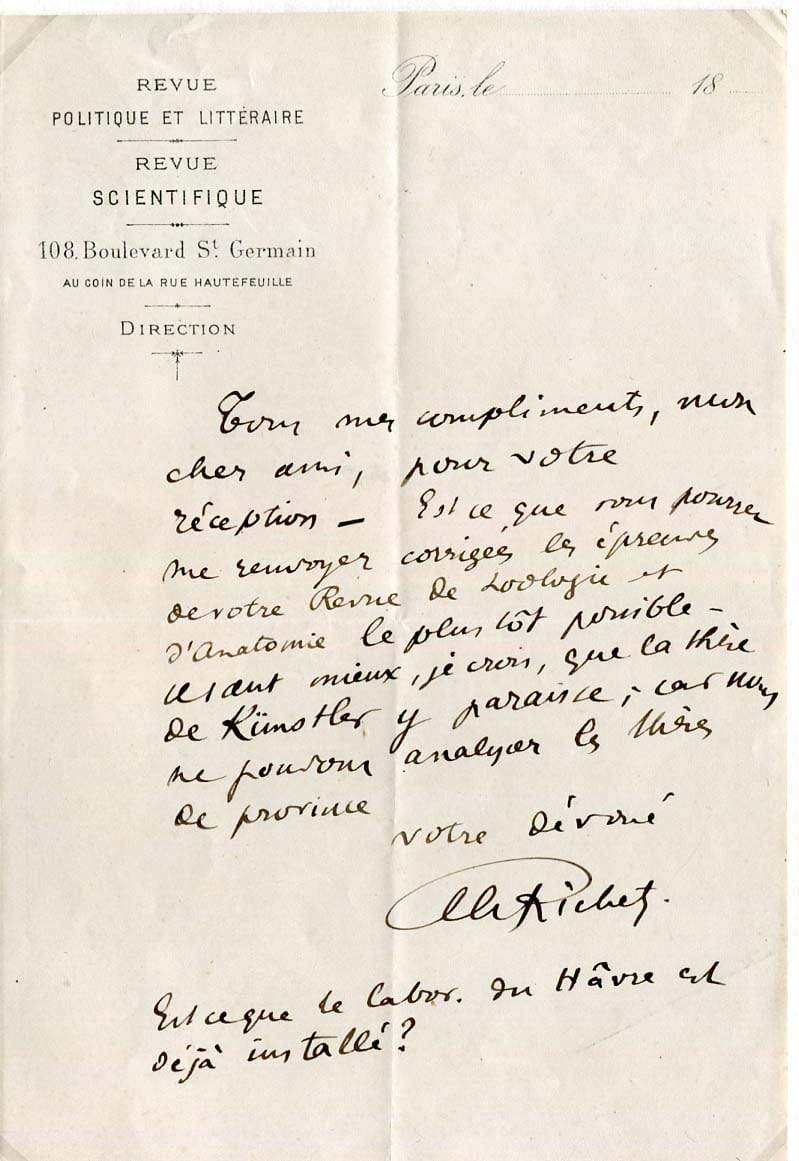 REVUE
POLITIQUE ET LITTÉRAIRE
REVUE
SCIENTIFIQUE
108, Boulevard St. Germain
AU COIN DE LA RUE HAUTEFEUILLE
DIRECTION
Paris, le 18
Tous mes compliments, mon
cher ami, pour votre
réception — Est ce que vous pourrez
me renvoyer corrigées les épreuves
de votre Revue de Zoologie et
d'Anatomie le plus tôt possible —
il vaut mieux, je crois, que la thèse
de Künstler y paraisse ; car nous
ne pouvons analyser les thèses
de province
votre dévoué
Ch Richet.
Est ce que le labor. du Hâvre est
déjà installé ?